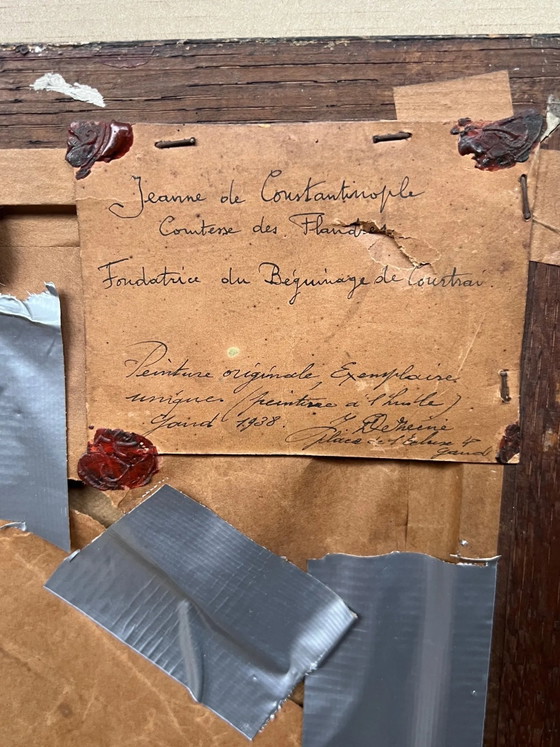 Jeanne de Constantinople
Comtesse des Flandres
Fondatrice du Béguinage de Courtrai.
Peinture originale, Exemplaire
unique (peinture à l'huile)
Gand 1938.
place de l'Ecluse 4
gand